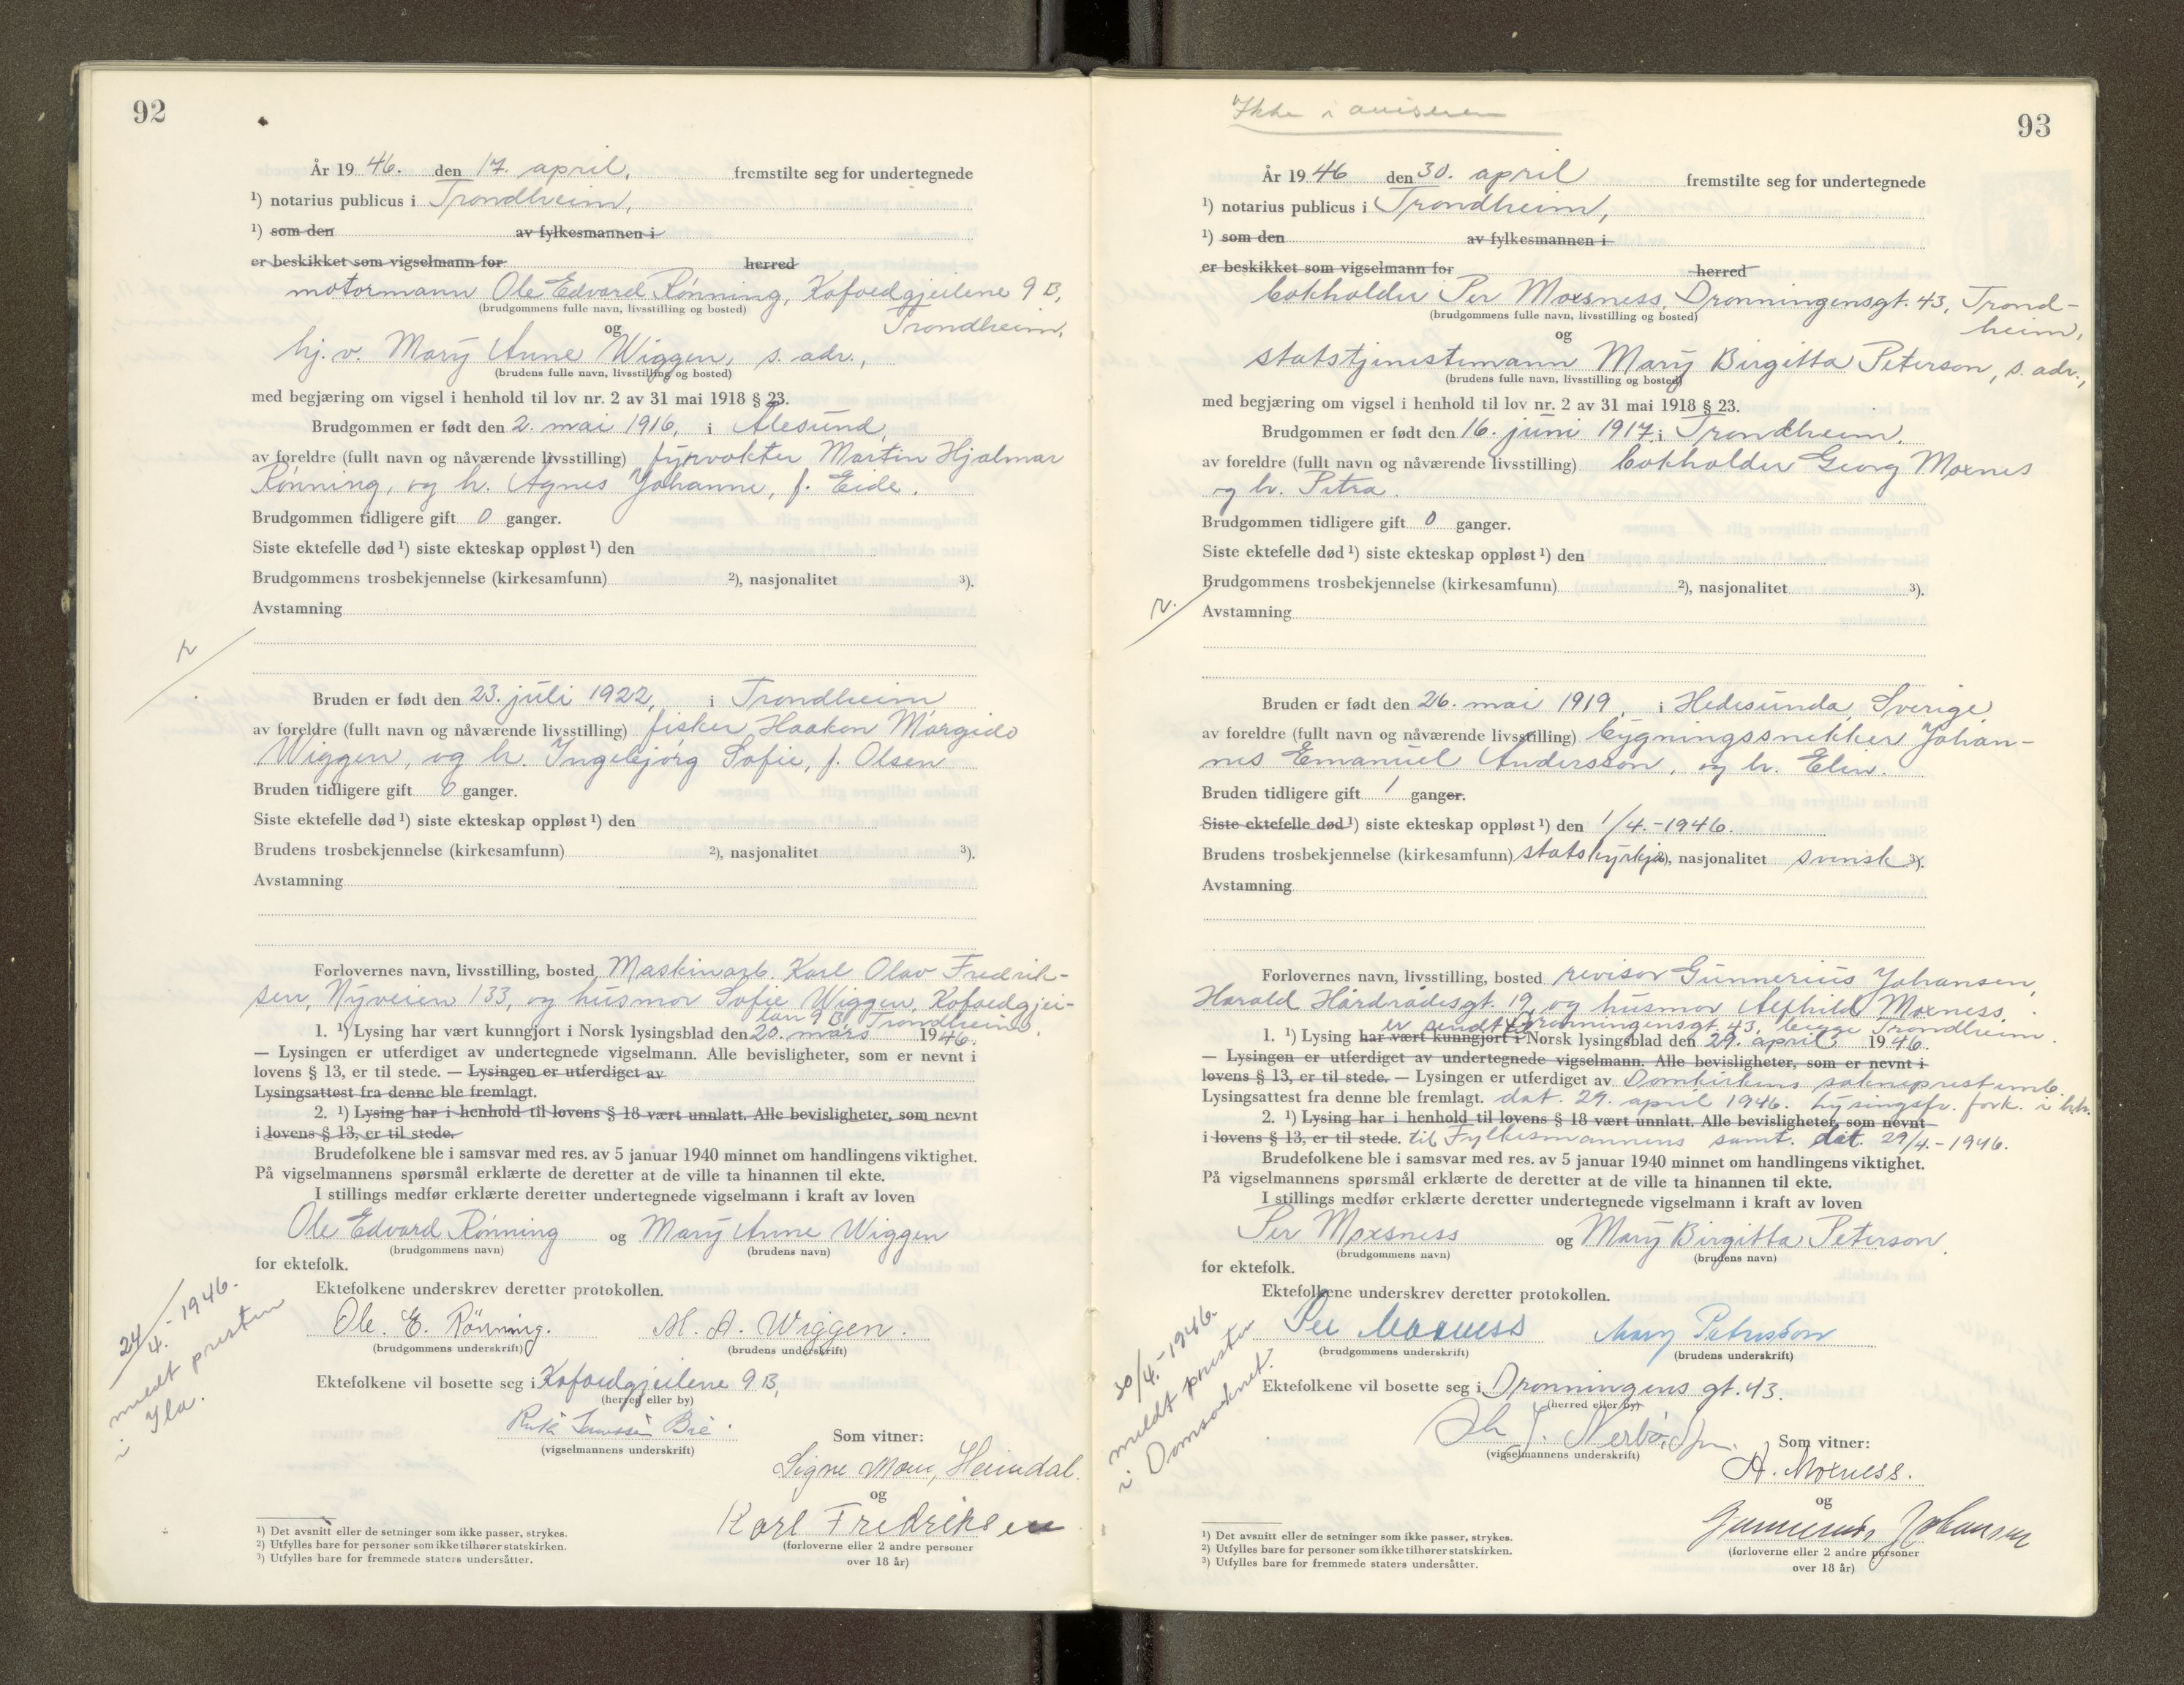 92
År 1946. den 17. april, fremstilte seg for undertegnede
¹) notarius publicus i Trondheim,
¹) som den av fylkesmannen i
er beskikket som vigselmann for herred
motormann Ole Edvard Rønning, Kofoedgjeilene 9 B,
(brudgommens fulle navn, livsstilling og bosted)
Trondheim,
og
hj. v. Mary Anne Wiggen, s. adr.,
(brudens fulle navn, livsstilling og bosted)
med begjæring om vigsel i henhold til lov nr. 2 av 31 mai 1918 § 23.
Brudgommen er født den 2. mai 1916, i Ålesund,
av foreldre (fullt navn og nåværende livsstilling) fyrvokter Martin Hjalmar
Rønning, og h. Agnes Johanne, f. Eide.
Brudgommen tidligere gift 0 ganger.
Siste ektefelle død ¹) siste ekteskap oppløst ¹) den
Brudgommens trosbekjennelse (kirkesamfunn) ²), nasjonalitet ³).
Avstamning
Bruden er født den 23. juli 1922, i Trondheim
av foreldre (fullt navn og nåværende livsstilling) fisker Haakon Margido
Wiggen, og h. Ingebjørg Sofie, f. Olsen
Bruden tidligere gift 0 ganger.
Siste ektefelle død ¹) siste ekteskap oppløst ¹) den
Brudens trosbekjennelse (kirkesamfunn) ²), nasjonalitet ³).
Avstamning
Forlovernes navn, livsstilling, bosted Maskinarb. Karl Olav Fredrik-
sen, Nyveien 133, og husmor Sofie Wiggen, Kofoedgjei-
len 9 B, Trondheim.
1. ¹) Lysing har vært kunngjort i Norsk lysingsblad den 20. mars 1946.
— Lysingen er utferdiget av undertegnede vigselmann. Alle bevisligheter, som er nevnt i
lovens § 13, er til stede. — Lysingen er utferdiget av
Lysingsattest fra denne ble fremlagt.
2. ¹) Lysing har i henhold til lovens § 18 vært unnlatt. Alle bevisligheter, som nevnt
i lovens § 13, er til stede.
Brudefolkene ble i samsvar med res. av 5 januar 1940 minnet om handlingens viktighet.
På vigselmannens spørsmål erklærte de deretter at de ville ta hinannen til ekte.
I stillings medfør erklærte deretter undertegnede vigselmann i kraft av loven
Ole Edvard Rønning og Mary Anne Wiggen
(brudgommens navn) (brudens navn)
for ektefolk.
Ektefolkene underskrev deretter protokollen.
Ole. E. Rönning. M. A. Wiggen.
(brudgommens underskrift) (brudens underskrift)
24/4.-1946.
meldt presten
i Ila.
Ektefolkene vil bosette seg i Kofoedgjeilene 9 B,
(herred eller by)
(vigselmannens underskrift)
Som vitner:
Signe Moen, Heimdal.
og
Karl Fredriksen
(forloverne eller 2 andre personer
over 18 år)
¹) Det avsnitt eller de setninger som ikke passer, strykes.
²) Utfylles bare for personer som ikke tilhører statskirken.
³) Utfylles bare for fremmede staters undersåtter.
Ikke i avisene
93
År 1946 den 30. april fremstilte seg for undertegnede
¹) notarius publicus i Trondheim,
¹) som den av fylkesmannen i
er beskikket som vigselmann for herred
bokholder Per Moxsness, Dronningensgt. 43, Trond-
(brudgommens fulle navn, livsstilling og bosted)
heim,
og
statstjenestemann Mary Birgitta Peterson, s. adr.,
(brudens fulle navn, livsstilling og bosted)
med begjæring om vigsel i henhold til lov nr. 2 av 31 mai 1918 § 23.
Brudgommen er født den 16. juni 1917, i Trondheim,
av foreldre (fullt navn og nåværende livsstilling) bokholder Georg Moxnes
og h. Petra.
Brudgommen tidligere gift 0 ganger.
Siste ektefelle død ¹) siste ekteskap oppløst ¹) den
Brudgommens trosbekjennelse (kirkesamfunn) ²), nasjonalitet ³).
Avstamning
Bruden er født den 26. mai 1919, i Hedesunda, Sverige,
av foreldre (fullt navn og nåværende livsstilling) bygningssnekker Johan-
nes Emanuel Andersson, og h. Elin.
Bruden tidligere gift 1 ganger.
Siste ektefelle død ¹) siste ekteskap oppløst ¹) den 1/4.-1946.
Brudens trosbekjennelse (kirkesamfunn) statskyrkja ²), nasjonalitet svensk ³).
Avstamning
Forlovernes navn, livsstilling, bosted revisor Gunnerius Johansen,
Harald Hårdrådesgt. 19, og husmor Alfhild Moxness,
Dronningensgt. 43, begge Trondheim.
er sendt
1. ¹) Lysing har vært kunngjort i Norsk lysingsblad den 29. april 1946.
— Lysingen er utferdiget av undertegnede vigselmann. Alle bevisligheter, som er nevnt i
lovens § 13, er til stede. — Lysingen er utferdiget av Domkirkens sokneprestemb.
Lysingsattest fra denne ble fremlagt. dat. 29. april 1946. Lysingsfr. fork. i hh.
2. ¹) Lysing har i henhold til lovens § 18 vært unnlatt. Alle bevisligheter, som nevnt
i lovens § 13, er til stede. til Fylkesmannens samt. dat. 29/4.-1946.
Brudefolkene ble i samsvar med res. av 5 januar 1940 minnet om handlingens viktighet.
På vigselmannens spørsmål erklærte de deretter at de ville ta hinannen til ekte.
I stillings medfør erklærte deretter undertegnede vigselmann i kraft av loven
Per Moxsness og Mary Birgitta Peterson,
(brudgommens navn) (brudens navn)
for ektefolk.
Ektefolkene underskrev deretter protokollen.
Per Moxness Mary Petersson
(brudgommens underskrift) (brudens underskrift)
30/4.-1946.
meldt presten
i Domsoknet.
Ektefolkene vil bosette seg i Dronningens gt. 43.
(herred eller by)
(vigselmannens underskrift)
Som vitner:
A. Moxness.
og
Gunnerius Johansen
(forloverne eller 2 andre personer
over 18 år)
¹) Det avsnitt eller de setninger som ikke passer, strykes.
²) Utfylles bare for personer som ikke tilhører statskirken.
³) Utfylles bare for fremmede staters undersåtter.